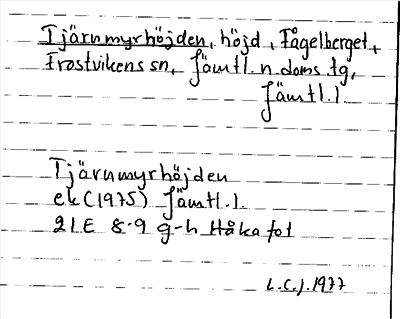 Tjärnmyrhöjden, höjd, Fågelberget,
Frostvikens sn, Jämtl. n. doms. tg,
Jämtl. l
Tjärnmyrhöjden
ek (1975) Jämtl. l.
21E 8-9 g-h Håkafot
L.C.J. 1977